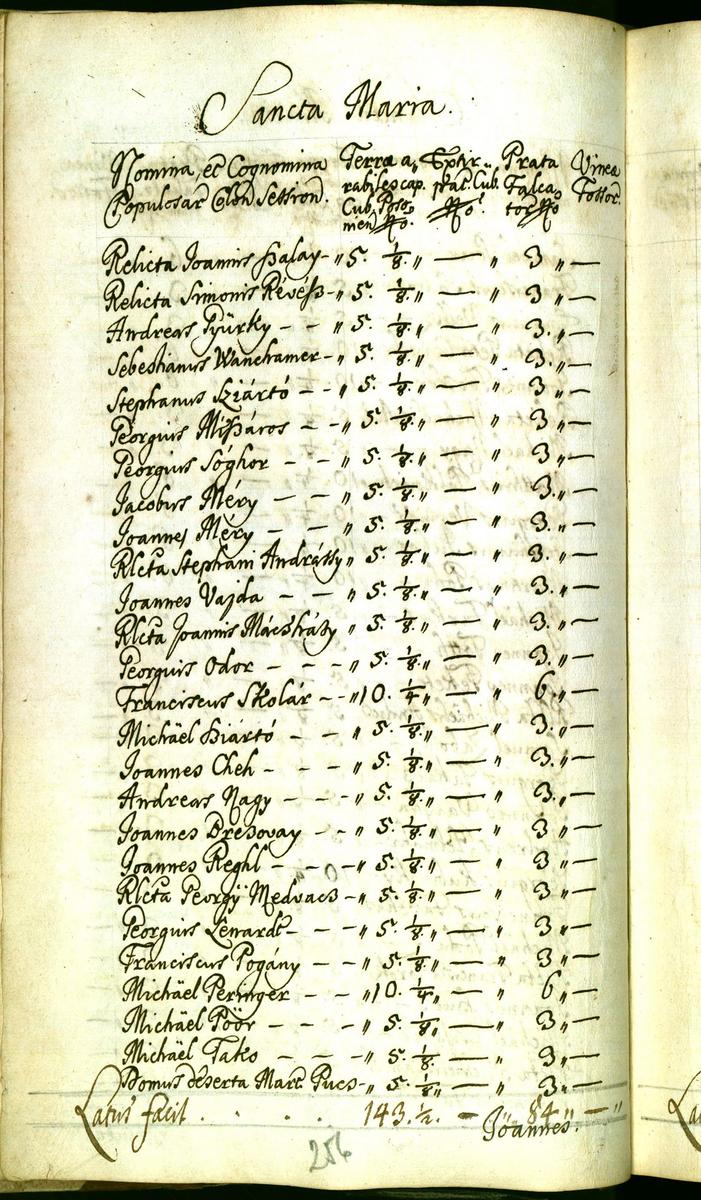 Sancta Maria.
Nomina, et Cognomina Terra a, Extir Prata Vinea
Populosar Colon Session. rabiles cap. pat. Cub. Falca Fossor.
Cub. Poso No tor No
nien No.
Relicta Joannis Halay - " 5. 1/8. " — " 3 " —
Relicta Simonis Révész - " 5. 1/8. " — " 3 " —
Andreas Gyürky - - " 5. 1/8. " — " 3. " —
Sebestianus Wanchamer - " 5. 1/8. " — " 3. " —
Stephanus Sziártó - - " 5. 1/8. " — " 3 " —
Georgius Mißáros - - " 5. 1/8. " — " 3 " —
Georgius Sóghor - - " 5. 1/8. " — " 3 " —
Jacobus Méry - - " 5. 1/8. " — " 3. " —
Joannes Méry - - " 5. 1/8. " — " 3. " —
Rlcta Stephani Andrássy " 5. 1/8. " — " 3. " —
Joannes Vajda - - " 5. 1/8. " — " 3. " —
Rlcta Joannis " 5. 1/8. " — " 3. " —
Georguis Odor - - - " 5. 1/8. " — " 3. " —
Franciscus Skolár - - " 10. 1/4. " — " 6. " —
Michäel Siártó - - " 5. 1/8. " — " 3. " —
Joannes Cheh - - - " 5. 1/8. " — " 3. " —
Andreas Nagy - - - " 5. 1/8. " — " 3. " —
Joannes Bresovay - - " 5. 1/8. " — " 3 " —
Joannes Reghl - - - " 5. 1/8. " — " 3 " —
Rlcta Georgÿ Medvacs - " 5. 1/8. " — " 3 " —
Georguis Lénardt - - - " 5. 1/8. " — " 3 " —
Franciscus Pogány - - " 5. 1/8. " — " 3 " —
Michäel Peringer - - " 10. 1/4. " — " 6 " —
Michäel Póór - - - " 5. 1/8. " — " 3 " —
Michäel Taks - - - " 5. 1/8. — " 3 " —
Domus deserta Marc - " 5. 1/8. " — " 3 " —
Latus facit . . . . 143. 1/2. - " 84 " - "
Joannes.
256